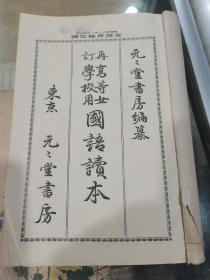 文部省檢定濟
元々堂書房編纂
再訂
高等女學校用
國語讀本
東京 元々堂書房